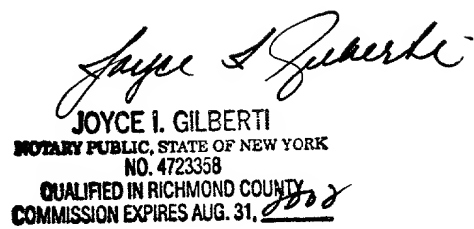 Joyce I Gilberti
JOYCE I. GILBERTI
NOTARY PUBLIC, STATE OF NEW YORK
NO. 4723358
QUALIFIED IN RICHMOND COUNTY
COMMISSION EXPIRES AUG. 31, 2002